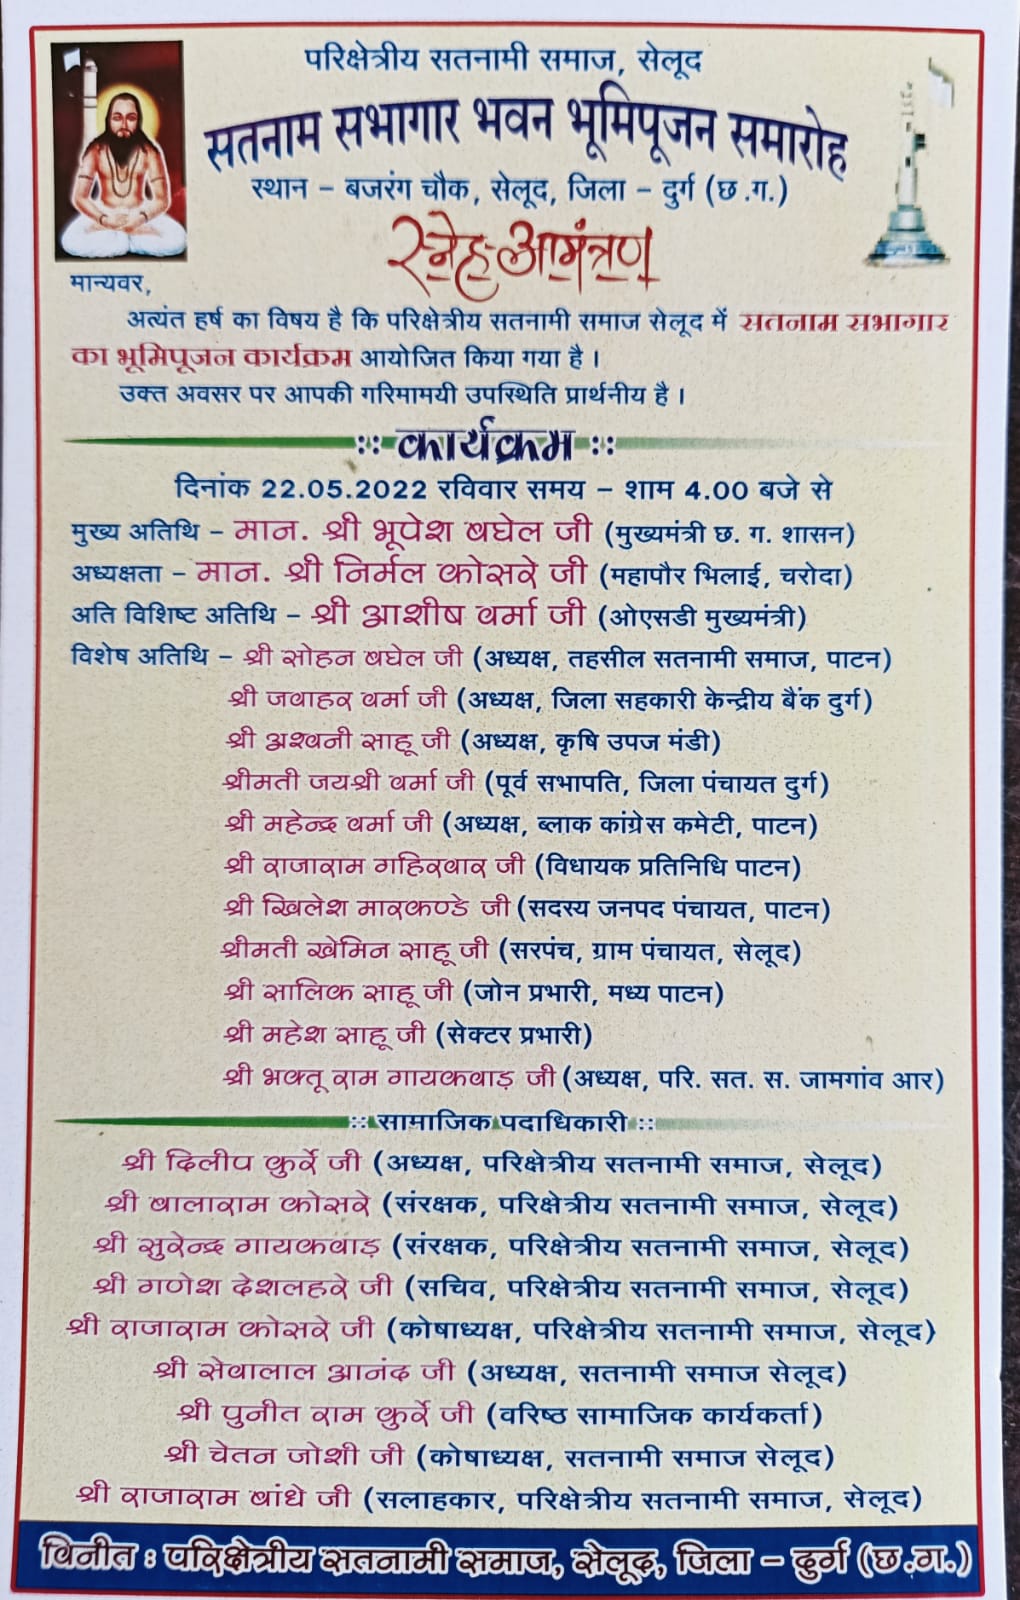 परिक्षेत्रीय सतनामी समाज, सेलूद
सतनाम सभागार भवन भूमिपूजन समारोह
स्थान - बजरंग चौक, सेलूद, जिला - दुर्ग (छ.ग.)
स्नेह-आमंत्रण
मान्यवर,
अत्यंत हर्ष का विषय है कि परिक्षेत्रीय सतनामी समाज सेलूद में सतनाम सभागार
का भूमिपूजन कार्यक्रम आयोजित किया गया है ।
उक्त अवसर पर आपकी गरिमामयी उपस्थिति प्रार्थनीय है ।
:: कार्यक्रम ::
दिनांक 22.05.2022 रविवार समय - शाम 4.00 बजे से
मुख्य अतिथि - मान. श्री भूपेश बघेल जी (मुख्यमंत्री छ. ग. शासन)
अध्यक्षता - मान. श्री निर्मल कोसरे जी (महापौर भिलाई, चरोदा)
अति विशिष्ट अतिथि - श्री आशीष वर्मा जी (ओएसडी मुख्यमंत्री)
विशेष अतिथि - श्री सोहन बघेल जी (अध्यक्ष, तहसील सतनामी समाज, पाटन)
श्री जवाहर वर्मा जी (अध्यक्ष, जिला सहकारी केन्द्रीय बैंक दुर्ग)
श्री अश्वनी साहू जी (अध्यक्ष, कृषि उपज मंडी)
श्रीमती जयश्री वर्मा जी (पूर्व सभापति, जिला पंचायत दुर्ग)
श्री महेन्द्र वर्मा जी (अध्यक्ष, ब्लाक कांग्रेस कमेटी, पाटन)
श्री राजाराम गहिरवार जी (विधायक प्रतिनिधि पाटन)
श्री खिलेश मारकण्डे जी (सदस्य जनपद पंचायत, पाटन)
श्रीमती खेमिन साहू जी (सरपंच, ग्राम पंचायत, सेलूद)
श्री सालिक साहू जी (जोन प्रभारी, मध्य पाटन)
श्री महेश साहू जी (सेक्टर प्रभारी)
श्री भक्तू राम गायकवाड़ जी (अध्यक्ष, परि. सत. स. जामगांव आर)
:: सामाजिक पदाधिकारी ::
श्री दिलीप कुर्रे जी (अध्यक्ष, परिक्षेत्रीय सतनामी समाज, सेलूद)
श्री बालाराम कोसरे (संरक्षक, परिक्षेत्रीय सतनामी समाज, सेलूद)
श्री सुरेन्द्र गायकवाड़ (संरक्षक, परिक्षेत्रीय सतनामी समाज, सेलूद)
श्री गणेश देशलहरे जी (सचिव, परिक्षेत्रीय सतनामी समाज, सेलूद)
श्री राजाराम कोसरे जी (कोषाध्यक्ष, परिक्षेत्रीय सतनामी समाज, सेलूद)
श्री सेवालाल आनंद जी (अध्यक्ष, सतनामी समाज सेलूद)
श्री पुनीत राम कुर्रे जी (वरिष्ठ सामाजिक कार्यकर्ता)
श्री चेतन जोशी जी (कोषाध्यक्ष, सतनामी समाज सेलूद)
श्री राजाराम बांधे जी (सलाहकार, परिक्षेत्रीय सतनामी समाज, सेलूद)
विनीत : परिक्षेत्रीय सतनामी समाज, सेलूद, जिला - दुर्ग (छ.ग.)